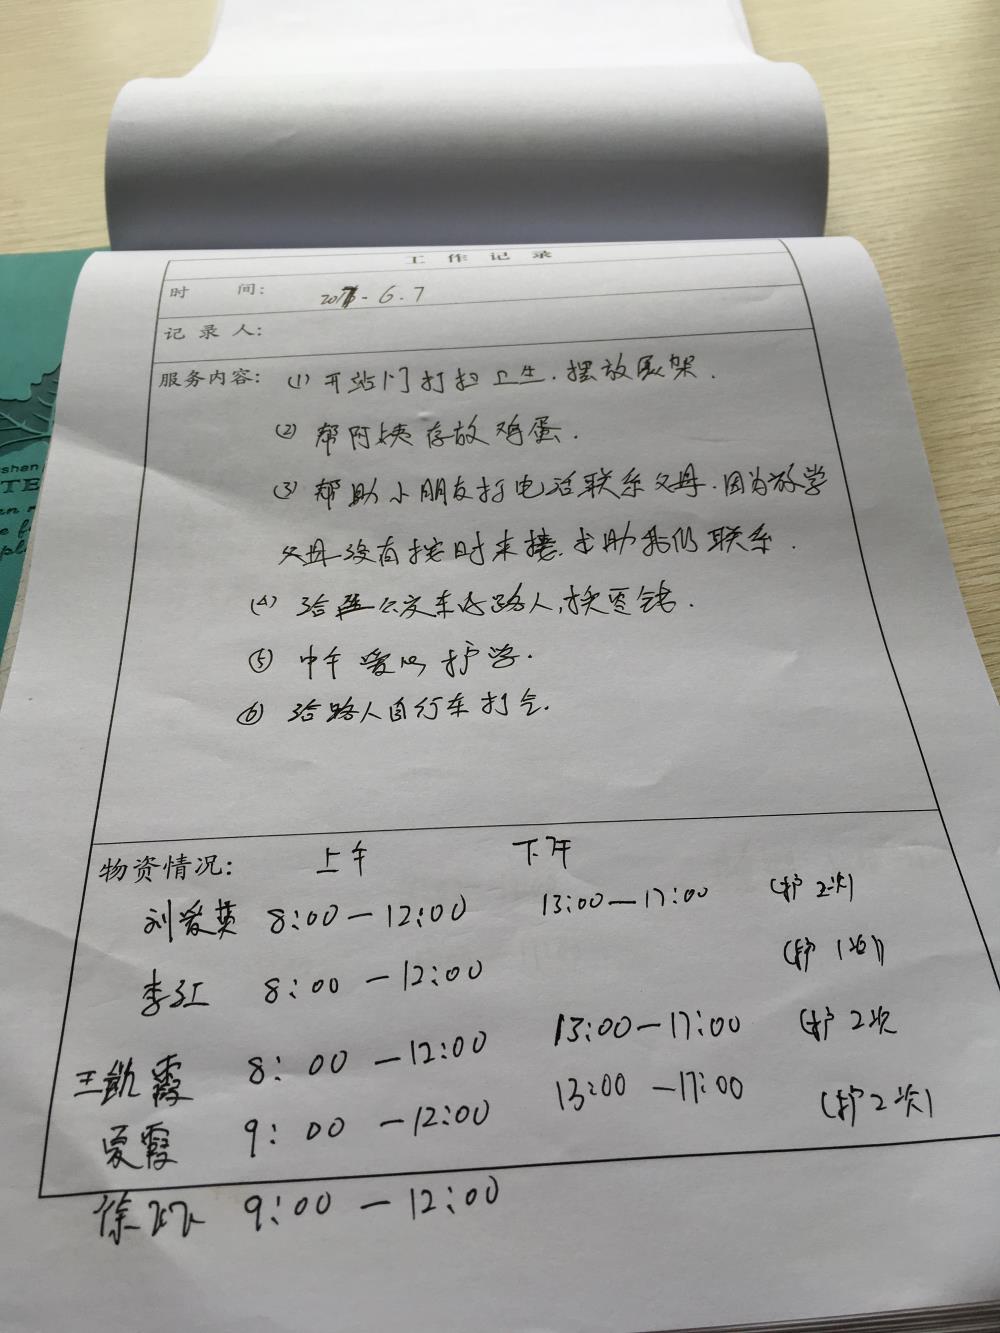 工作记录
时 间： 6.7
记录人：
服务内容： (1) 开站门打扫卫生.摆放展架.
② 帮阿姨存放鸡蛋.
(3) 帮助小朋友打电话联系父母.因为放学
父母没有按时来接.求助我们联系.
(4) 给 公交车的路人,换零钱.
⑤ 中午爱心护学.
⑥ 给路人自行车打气.
物资情况： 上午 下午
刘爱英 8:00—12:00 13:00—17:00 (护2次)
李红 8:00—12:00 (护1次)
王凯霞 8:00—12:00 13:00—17:00 (护2次
夏霞 9:00—12:00 13:00—17:00 (护2次)
徐 9:00—12:00
shan
TE